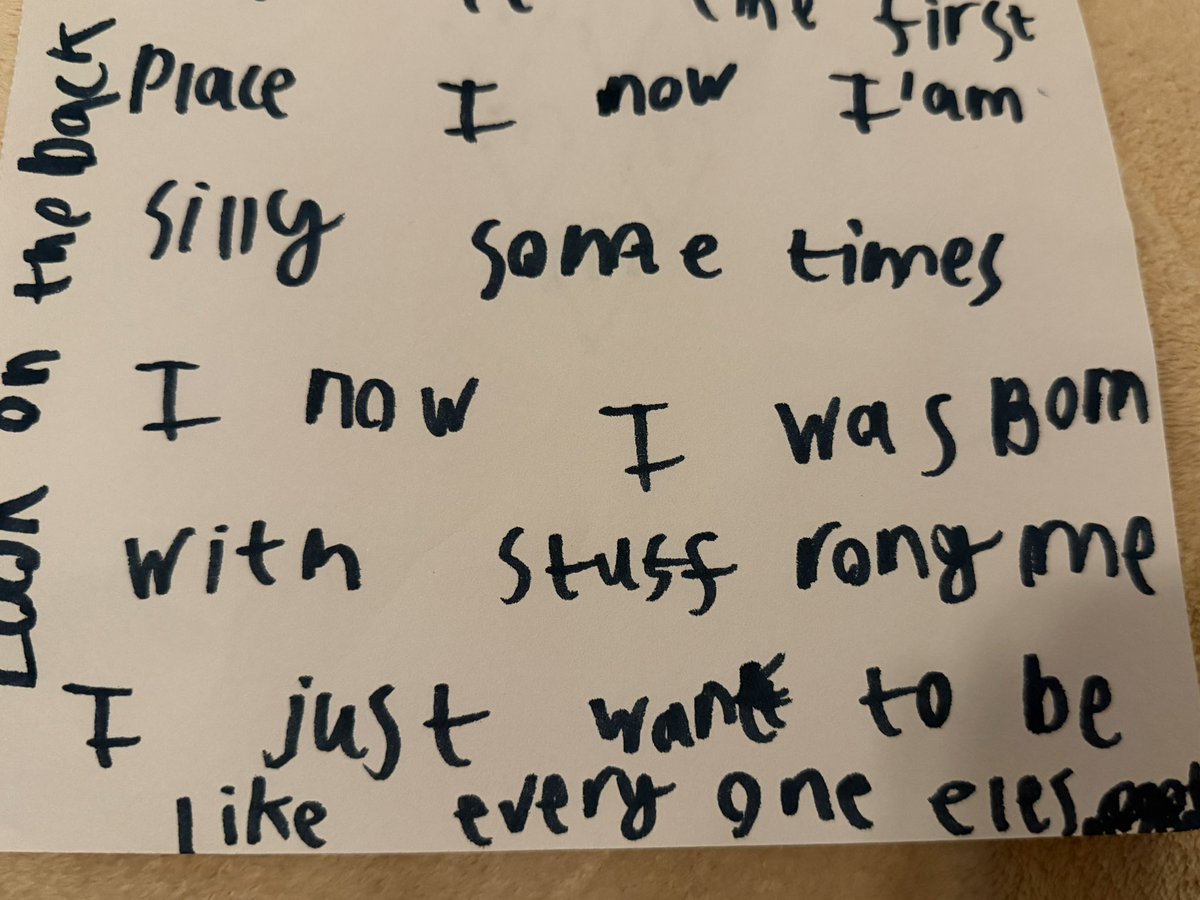 the first
place I now I'am
silly some times
I now I was Born
with stuff rong me
I just want to be
like every one eles
Look on the back